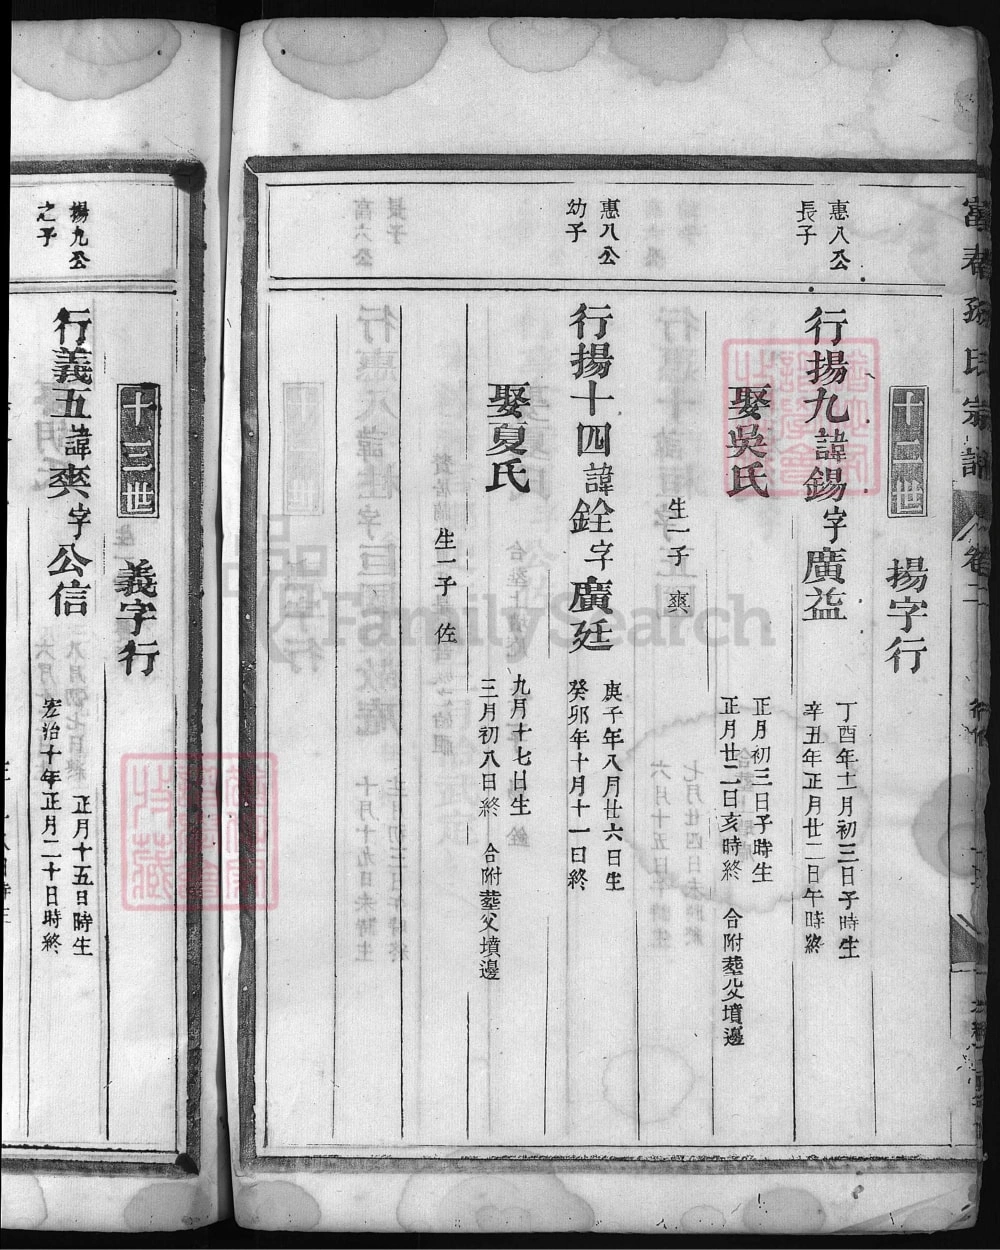 富春孫氏宗譜
卷二
十二世
揚字行
惠八公
長子
行揚九諱錫字廣益
丁酉年十一月初三日子時生
辛丑年正月廿二日午時終
娶吳氏
正月初三日子時生
正月廿二日亥時終
合附葬父墳邊
生一子 爽
惠八公
幼子
行揚十四諱銓字廣廷
庚子年八月廿六日生
癸卯年十月十一日終
娶夏氏
九月十七日生
三月初八日終
合附葬父墳邊
生一子 佐
十三世
義字行
揚九公
之子
行義五諱爽字公信
正月十五日時生
宏治十年正月二十日時終
FamilySearch